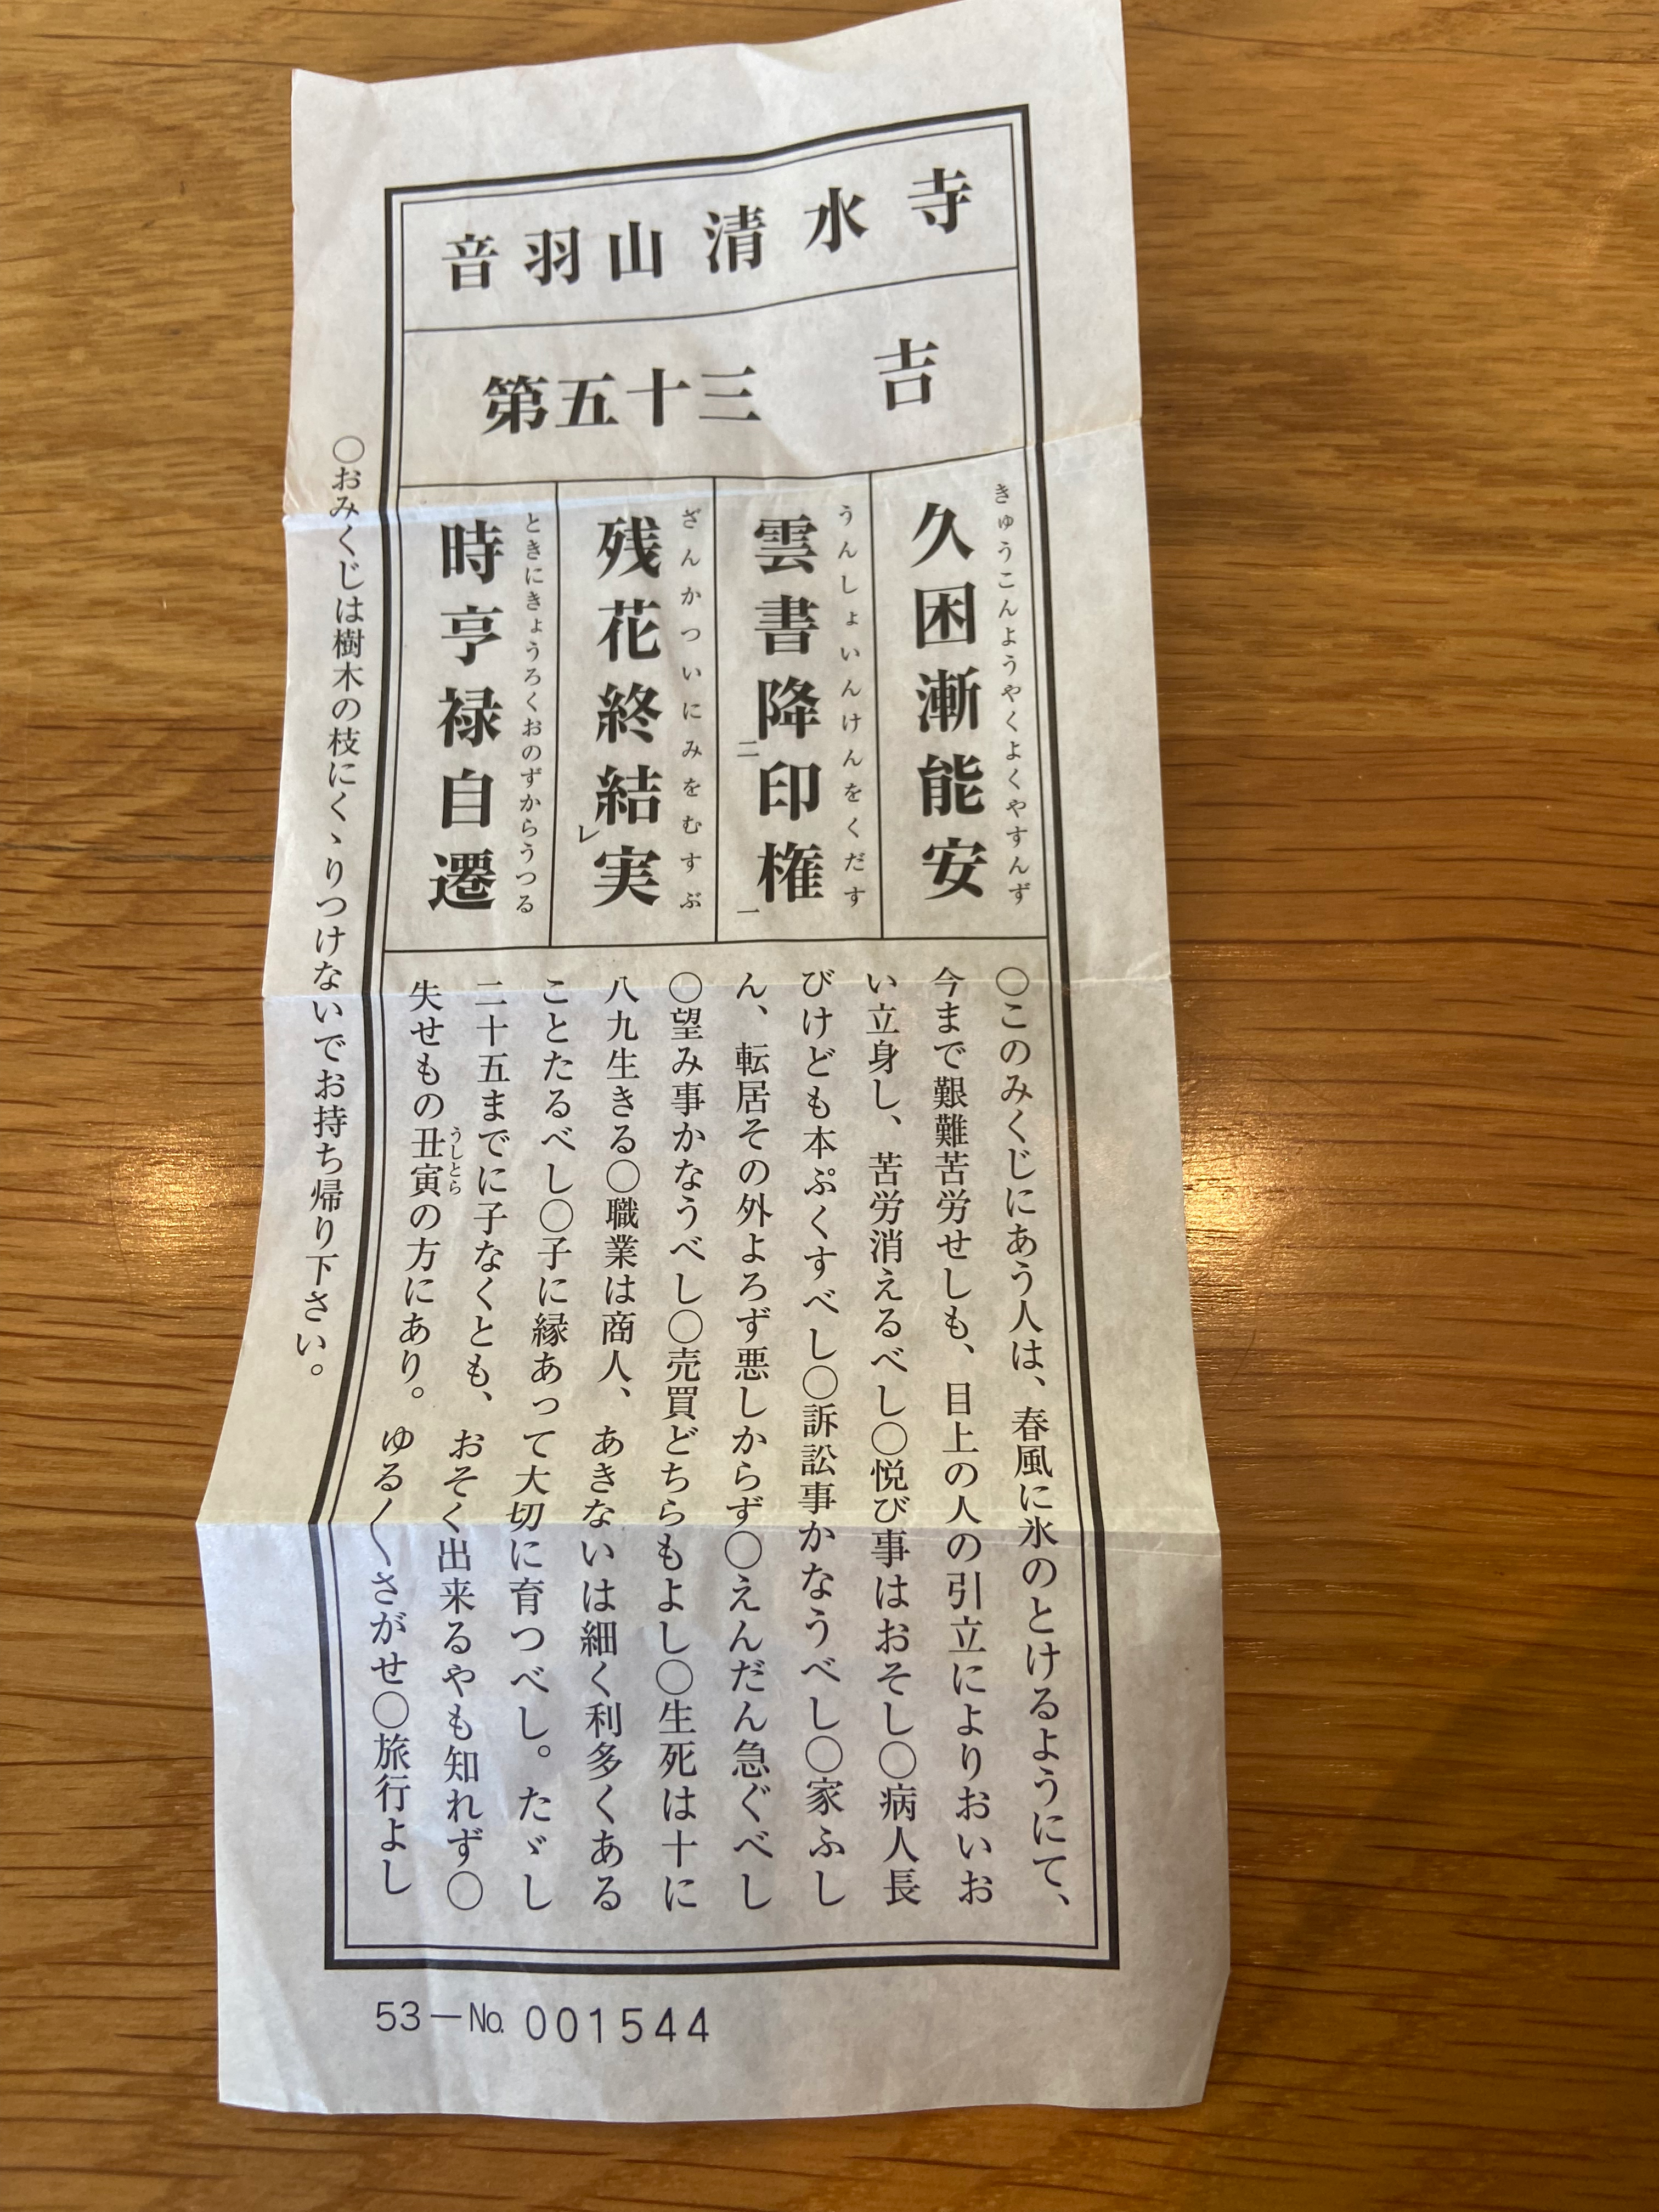 音羽山清水寺
第五十三 吉
きゅうこんようやくよくやすんず
久困漸能安
うんしょいんけんをくだす
雲書降二印権一
ざんかついにみをむすぶ
残花終結レ実
ときにきょうろくおのずからうつる
時亨禄自遷
〇このみくじにあう人は、春風に氷のとけるようにて、
今まで艱難苦労せしも、目上の人の引立によりおいお
い立身し、苦労消えるべし〇悦び事はおそし〇病人長
びけども本ぷくすべし〇訴訟事かなうべし〇家ふし
ん、転居その外よろず悪しからず〇えんだん急ぐべし
〇望み事かなうべし〇売買どちらもよし〇生死は十に
八九生きる〇職業は商人、あきないは細く利多くある
ことたるべし〇子に縁あって大切に育つべし。たゞし
二十五までに子なくとも、おそく出来るやも知れず〇
失せもの丑寅の方にあり。ゆる〱さがせ〇旅行よし
うしとら
〇おみくじは樹木の枝にくゝりつけないでお持ち帰り下さい。
53－No. 001544